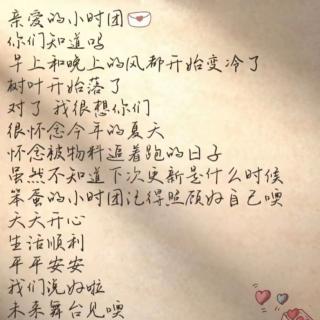 亲爱的小时团
你们知道吗
早上和晚上的风都开始变冷了
树叶开始落了
对了 我很想你们
很怀念今年的夏天
怀念被物料追着跑的日子
虽然不知道下次更新是什么时候
笨蛋的小时团记得照顾好自己噢
天天开心
生活顺利
平平安安
我们说好啦
未来舞台见噢